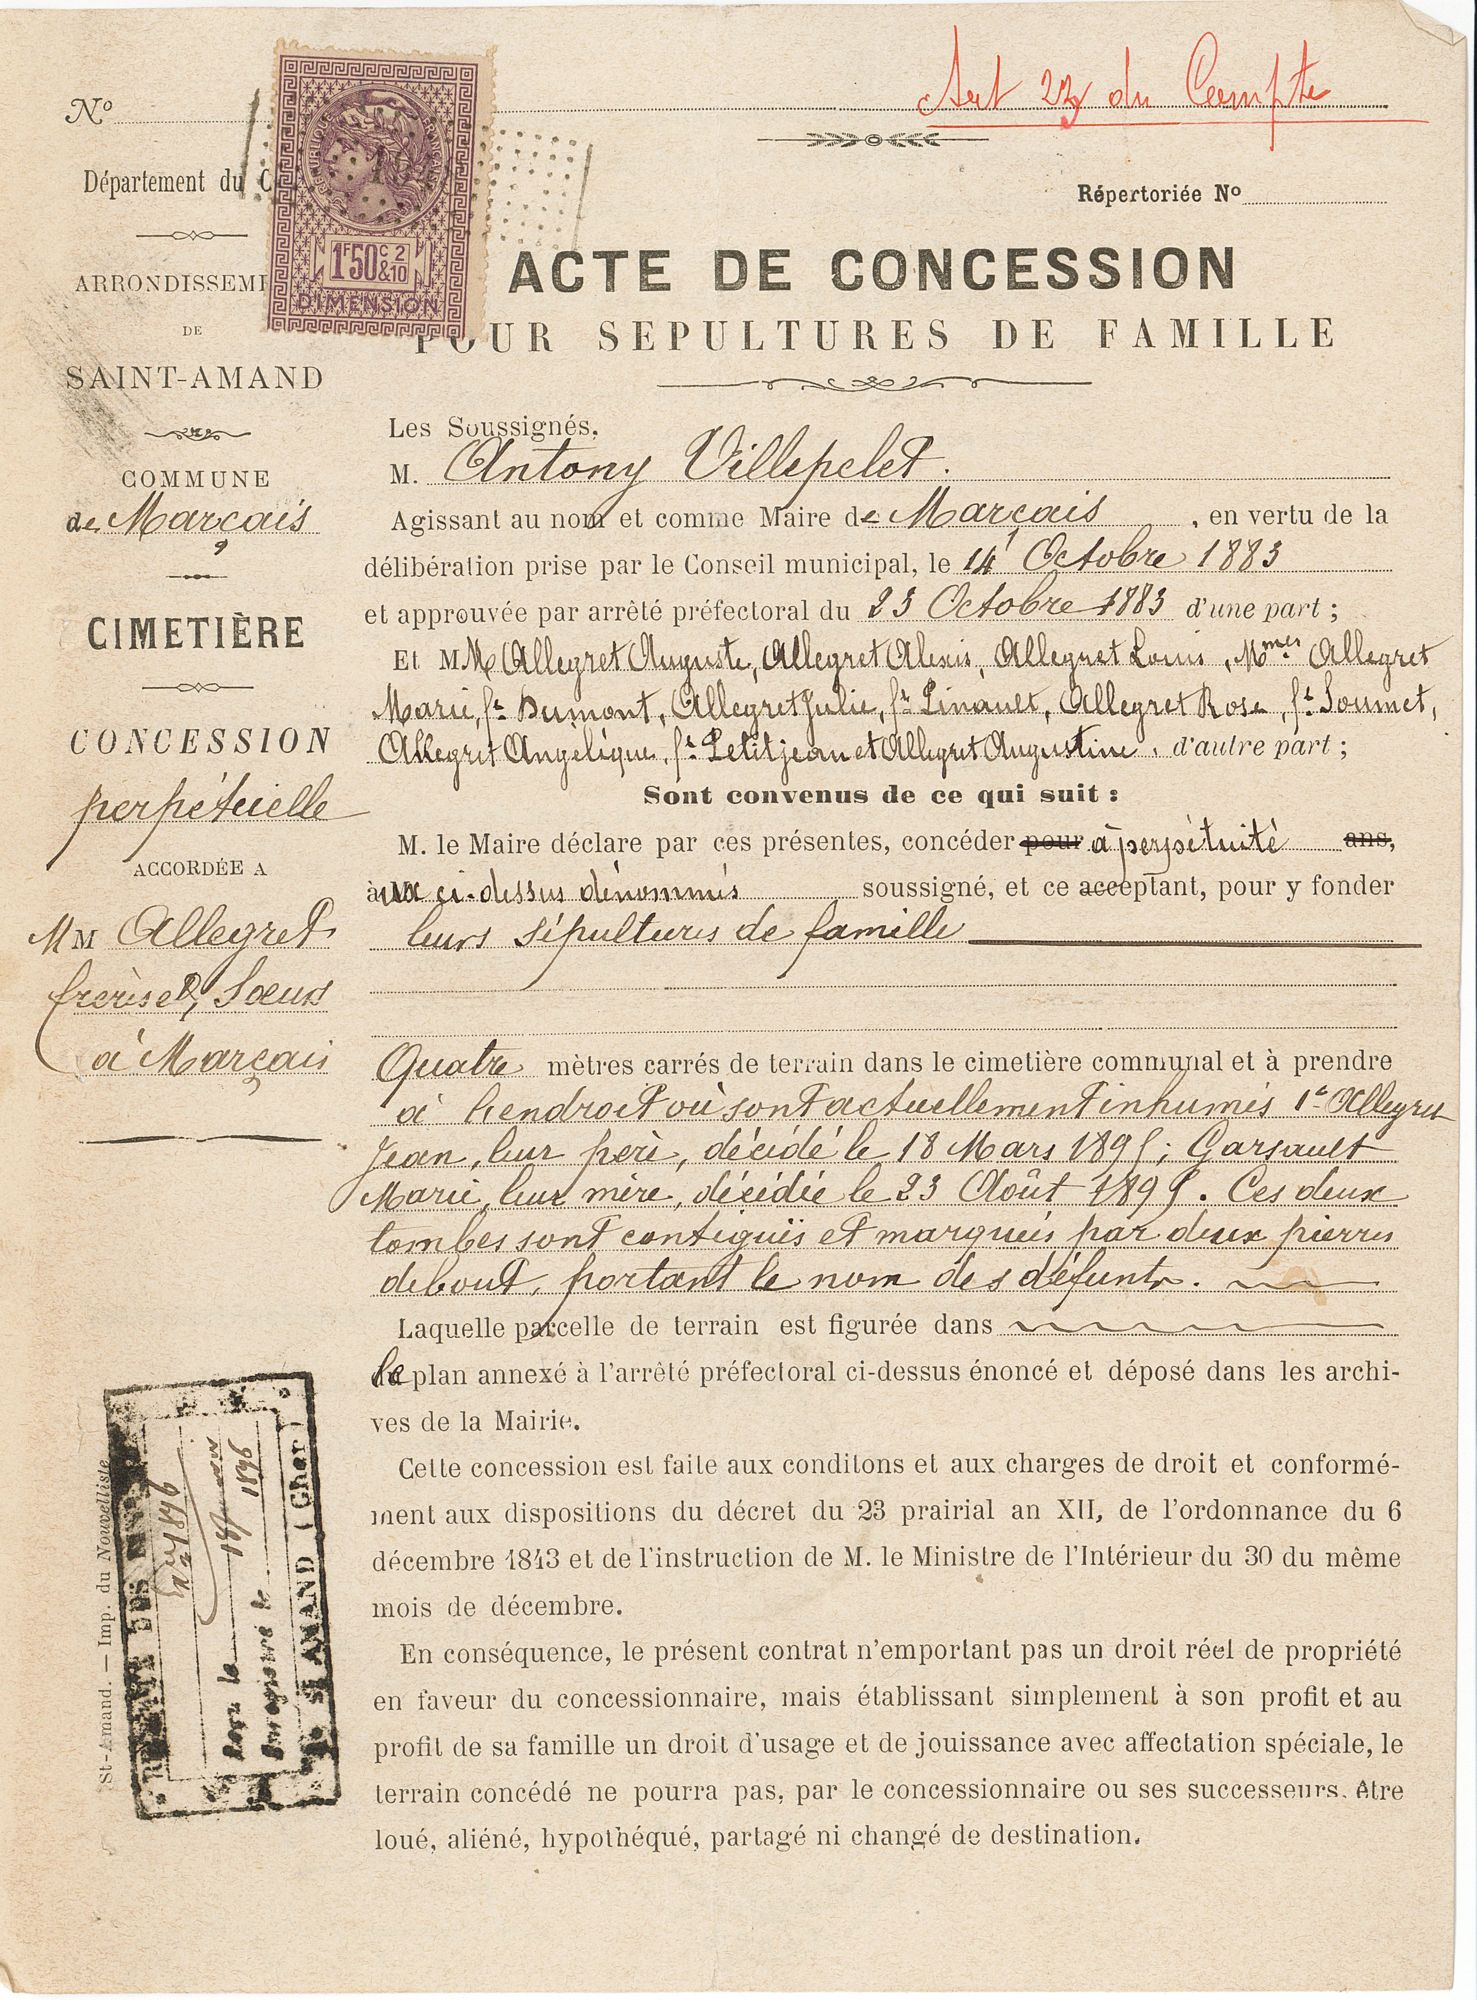 Art 23 du Compte
No
Répertoriée No
Département du C
ARRONDISSEME
DE
SAINT-AMAND
COMMUNE
de Marçais
CIMETIÈRE
CONCESSION
perpétuelle
ACCORDÉE A
MM Allegret
frères et Soeurs
à Marçais
REPUBLIQUE FRANÇAISE
1F50C 2
&10
DIMENSION
ACTE DE CONCESSION
POUR SEPULTURES DE FAMILLE
Les Soussignés,
M. Antony Villepelet.
Agissant au nom et comme Maire de Marçais, en vertu de la
délibération prise par le Conseil municipal, le 14 Octobre 1883
et approuvée par arrêté préfectoral du 23 Octobre 1883 d'une part ;
Et MM Allegret Auguste, Allegret Alexis, Allegret Louis, Mmes Allegret
Marie, fe Dumont, Allegret Julie, fe Pinault, Allegret Rose, fe Soumet,
Allegret Angélique, fe Petitjean et Allegret Augustine, d'autre part ;
Sont convenus de ce qui suit :
M. le Maire déclare par ces présentes, concéder pour à perpétuité ans,
aux ci-dessus dénommés soussigné, et ce acceptant, pour y fonder
leurs sépultures de famille
Quatre mètres carrés de terrain dans le cimetière communal et à prendre
à l'endroit où sont actuellement inhumés 1° Allegret
Jean, leur père, décédé le 18 Mars 1895; Garsault
Marie, leur mère, décédée le 23 Août 1895. Ces deux
tombes sont contiguës et marquées par deux pierres
debout, portant le nom des défunts.
Laquelle parcelle de terrain est figurée dans
le plan annexé à l'arrêté préfectoral ci-dessus énoncé et déposé dans les archi-
ves de la Mairie.
Cette concession est faite aux conditons et aux charges de droit et conformé-
ment aux dispositions du décret du 23 prairial an XII, de l'ordonnance du 6
décembre 1843 et de l'instruction de M. le Ministre de l'Intérieur du 30 du même
mois de décembre.
En conséquence, le présent contrat n'emportant pas un droit réel de propriété
en faveur du concessionnaire, mais établissant simplement à son profit et au
profit de sa famille un droit d'usage et de jouissance avec affectation spéciale, le
terrain concédé ne pourra pas, par le concessionnaire ou ses successeurs, être
loué, aliéné, hypothéqué, partagé ni changé de destination.
St-Amand. — Imp. du Nouvelliste
1896
1896
Reçu le
Enregistré le
St AMAND (Cher)